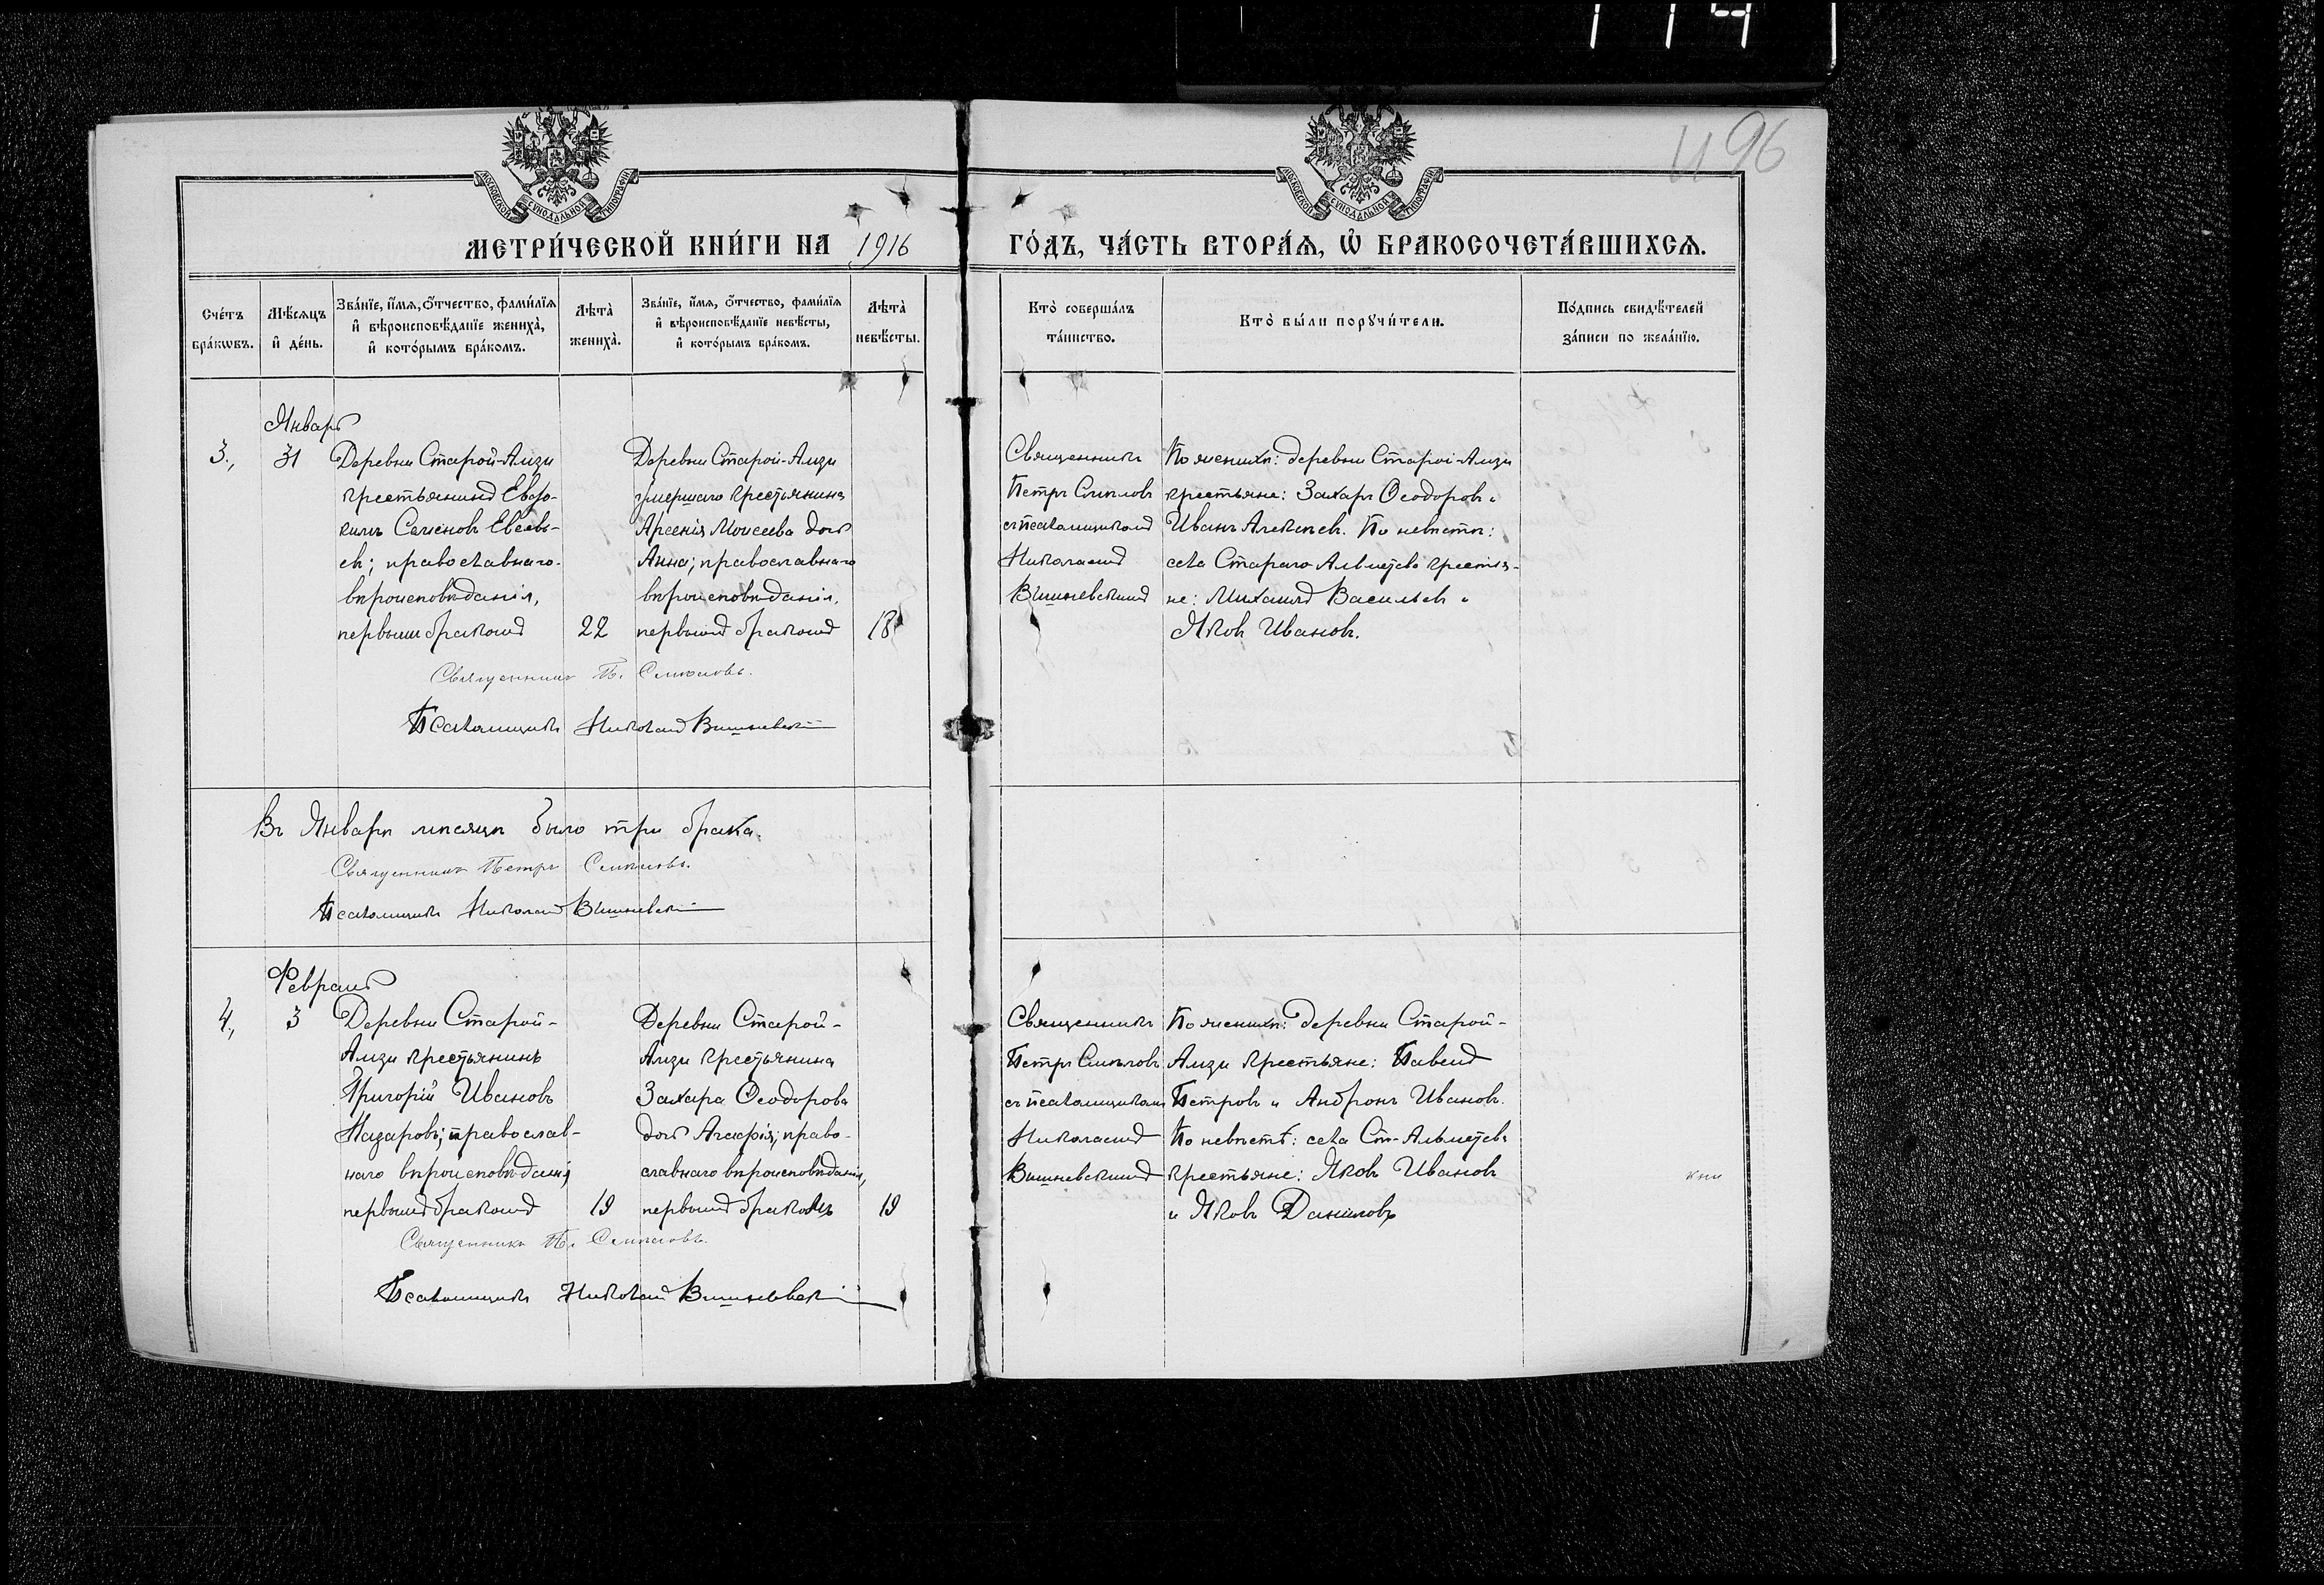 114
496
МОСКОВСКОЙ СУНОДАЛЬНОЙ ТИПОГРАФІИ
МОСКОВСКОЙ СУНОДАЛЬНОЙ ТИПОГРАФІИ
МЕТРИ́ЧЕСКОЙ КНИ́ГИ НА 1916 ГО́ДЪ, ЧА́СТЬ ВТОРА́Ѧ, Ѽ БРАКОСОЧЕТА́ВШИХСѦ.
Сче́тъ бра́кѡвъ.
Мѣ́сѧцъ и҆ де́нь.
Зва́нїе, и҆́мѧ, ѻ҆́тчество, фами́лїѧ и҆ вѣроисповѣ́данїе жениха̀, и҆ кото́рымъ бра́комъ.
Лѣта̀ жениха̀.
Зва́нїе, и҆́мѧ, ѻ҆́тчество, фами́лїѧ и҆ вѣроисповѣ́данїе невѣ́сты, и҆ кото́рымъ бра́комъ.
Лѣта̀ невѣ́сты.
Кто̀ соверша́лъ та́инство.
Кто̀ бы́ли порꙋчи́тели.
По́дпись свидѣ́телей за́писи по жела́нїю.
Январь
3., 31
Деревни Старой-Ализи
крестьянинъ Евдо-
кимъ Семеновъ Евсевь-
евъ; православнаго
вѣроисповѣданія,
первымъ бракомъ
22
Деревни Старой-Ализи
умершаго крестьянина
Арсенія Моисеева дочь
Анна; православнаго
вѣроисповѣданія,
первымъ бракомъ
18
Священникъ
Петръ
съ псаломщикомъ
Николаемъ
Вишневскимъ
По женихѣ: деревни Старой-Ализи
крестьяне: Захаръ Ѳеодоровъ и
Иванъ Алексѣевъ. По невѣстѣ:
села Стараго Альметева крестья-
не: Михаилъ Васильевъ и
Яковъ Ивановъ.
Священникъ П.
Псаломщикъ Николай Вишневскій
Въ Январѣ мѣсяцѣ было три брака.
Священникъ Петръ
Псаломщикъ Николай Вишневскій
Февраль
4., 3
Деревни Старой-
Ализи крестьянинъ
Григорій Ивановъ
Назаровъ; православ-
наго вѣроисповѣданія,
первымъ бракомъ
19
Деревни Старой-
Ализи крестьянина
Захара Ѳеодорова
дочь Агафія; право-
славнаго вѣроисповѣданія,
первымъ бракомъ
19
Священникъ
Петръ
съ псаломщикомъ
Николаемъ
Вишневскимъ
По женихѣ: деревни Старой-
Ализи крестьяне: Павелъ
Петровъ и Андронъ Ивановъ.
По невѣстѣ: села Ст-Альметева
крестьяне: Яковъ Ивановъ
и Яковъ Даниловъ
Священникъ П.
Псаломщикъ Николай Вишневскій